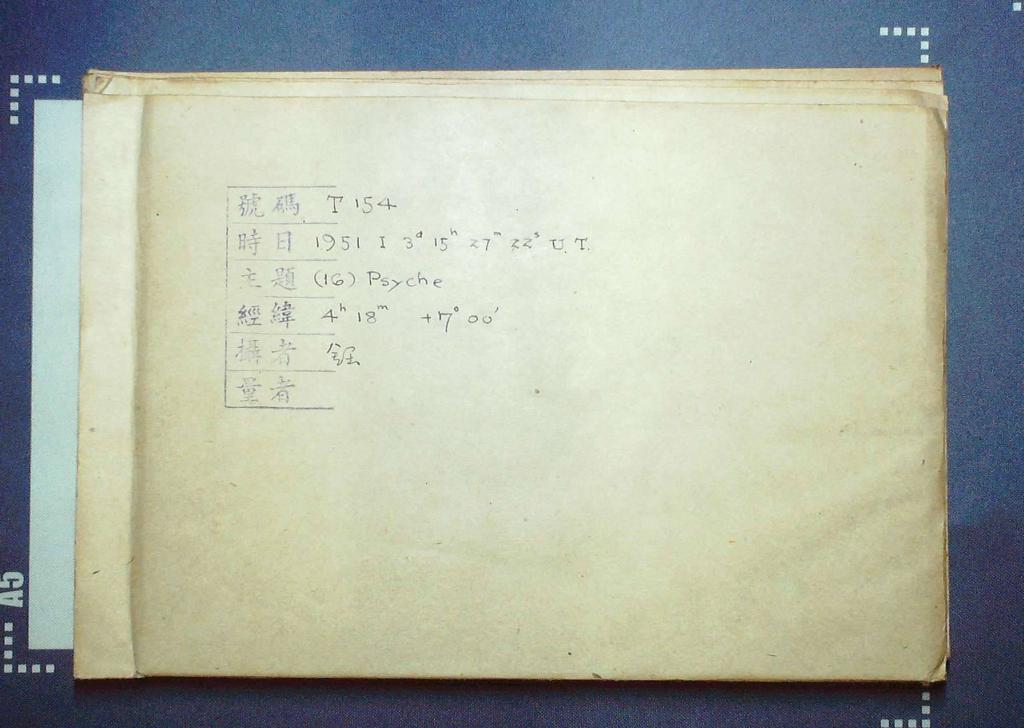 號碼 T 154
時日 1951 I 3ᵈ 15ʰ 27ᵐ 22ˢ U.T.
主題 (16) Psyche
經緯 4ʰ 18ᵐ +7° 00′
攝者
量者
A5